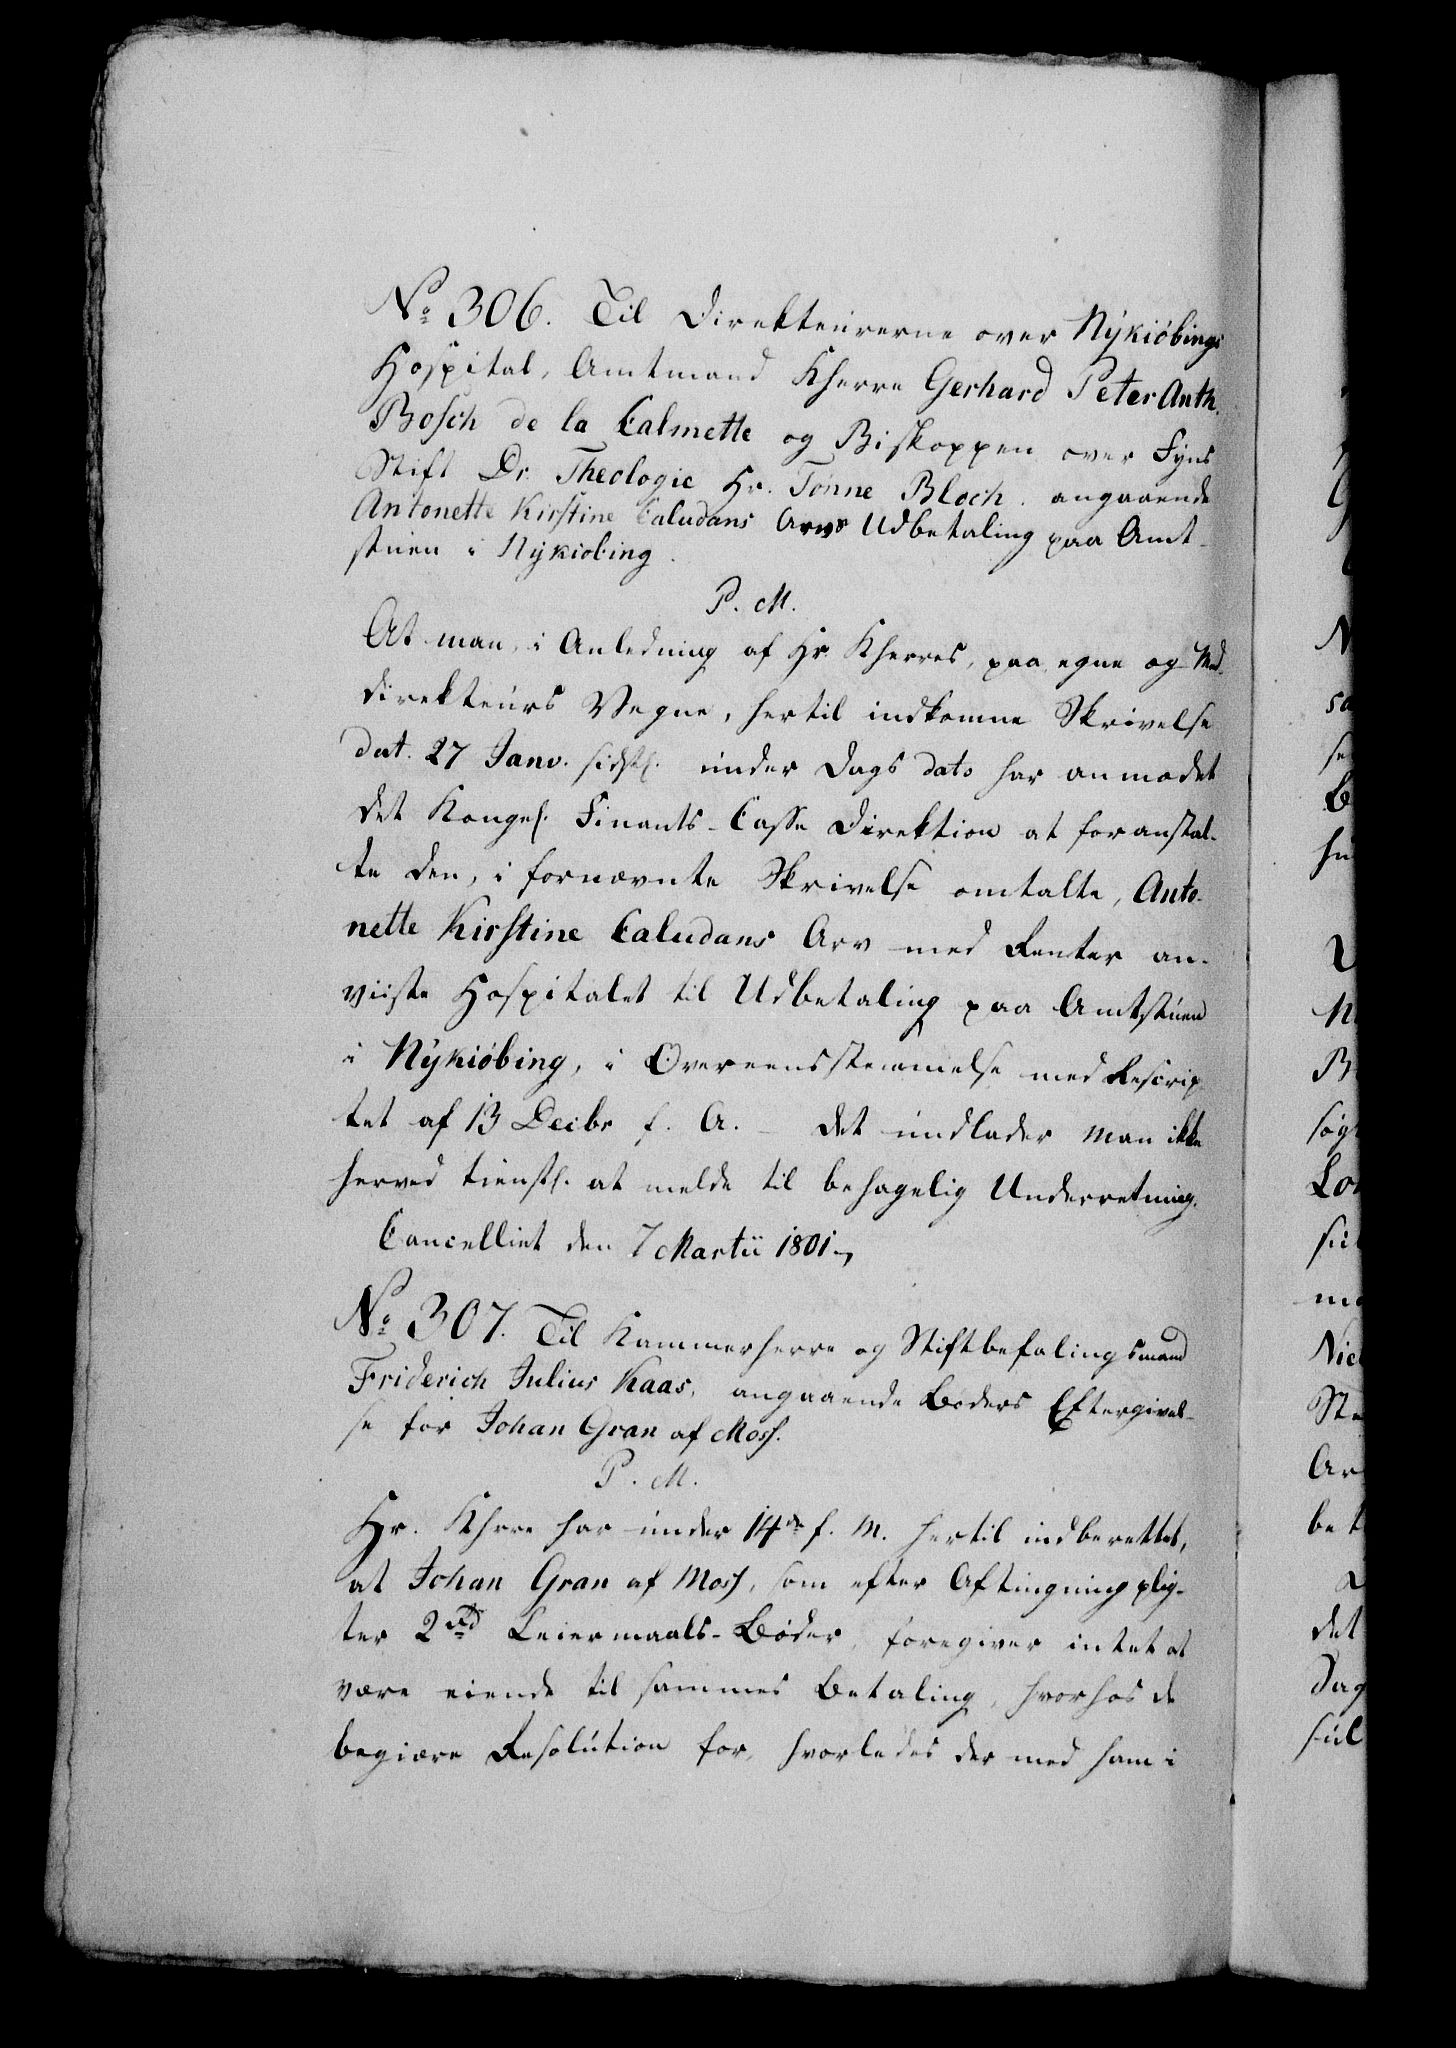 No 306. Til Direkteurerne over Nÿkiøbings
Hospital, Amtmand Kherre Gerhard Peter Anth.
Bosch de la Calmette og Biskoppen over Fÿns
Stift Dr. Theologie Hr. Tønne Bloch angaaende
Antonette Kirstine Caludans Arvs Udbetaling paa Amt-
stuen i Nÿkiøbing.
P. M.
At man, i Anledning af Hr Kherres, paa egne og Med-
direkteurs Vegne, hertil indkomne Skrivelse
dat. 27 Janv. sidstl. under Dags dato har anmodet
det Kongel. Finants-Casse Direktion at foranstal-
te den, i fornævnte Skrivelse omtalte, Anto-
nette Kirstine Caludans Arv med Renter an-
viiste Hospitalet til Udbetaling paa Amtstuen
i Nÿkiøbing, i Overeensstemmelse med Rescrip
tet af 13 Decbr f. A. – det undlader man ikke
herved tienstl. at melde til behagelig Underretning.
Cancelliet den 7 Martii 1801.
No 307. Til Kammerherre og Stiftbefalingsmand
Friderich Julius Kaas, angaaende Bøders Eftergivel-
se for Johan Gran af Moss.
P. M.
Hr. Khrre har under 14de f. M. hertil indberettet,
at Johan Gran af Moss, som efter Aftingning plig-
ter 2 Rd Leiermaals-Bøder, foregiver intet at
være eiende til sammes Betaling, hvorhos de
begiære Resolution for, hvorledes der med ham i